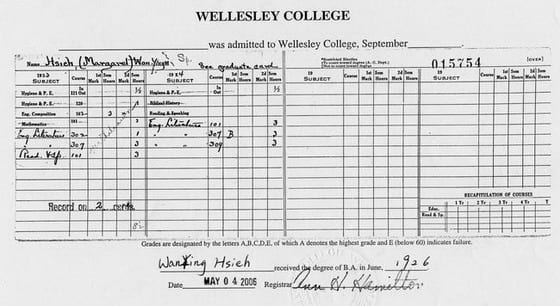 WELLESLEY COLLEGE
was admitted to Wellesley College, September
Name Hsieh, (Margaret) Wan Sp. See graduate card 015754 (OVER)
SUBJECT Course 1st Mark 2d Mark Sem Hours SUBJECT Course 1st Mark 2d Mark Sem Hours 19 SUBJECT Course 1st Mark 2d Mark Sem Hours 19 SUBJECT Course 1st Mark 2d Mark Sem Hours
Hygiene & P. E. ½ Hygiene & P. E. ½
Hygiene & P. E. 120 Biblical History
Eng. Composition 3 Reading & Speaking
Mathematics 101 3 Eng. Literature 101 3
Eng Literature 302 307 B 3
" 307 3 " 309 3
101 3
Record on 2 cards
RECAPITULATION OF COURSES
1 Yr 2 Yr 3 Yr 4 Yr
Educ.
Read & Sp.
Grades are designated by the letters A,B,C,D,E, of which A denotes the highest grade and E (below 60) indicates failure.
Wanying Hsieh received the degree of B.A. in June, 1926
Date MAY 04 2006 Registrar Ann H. Hamilton